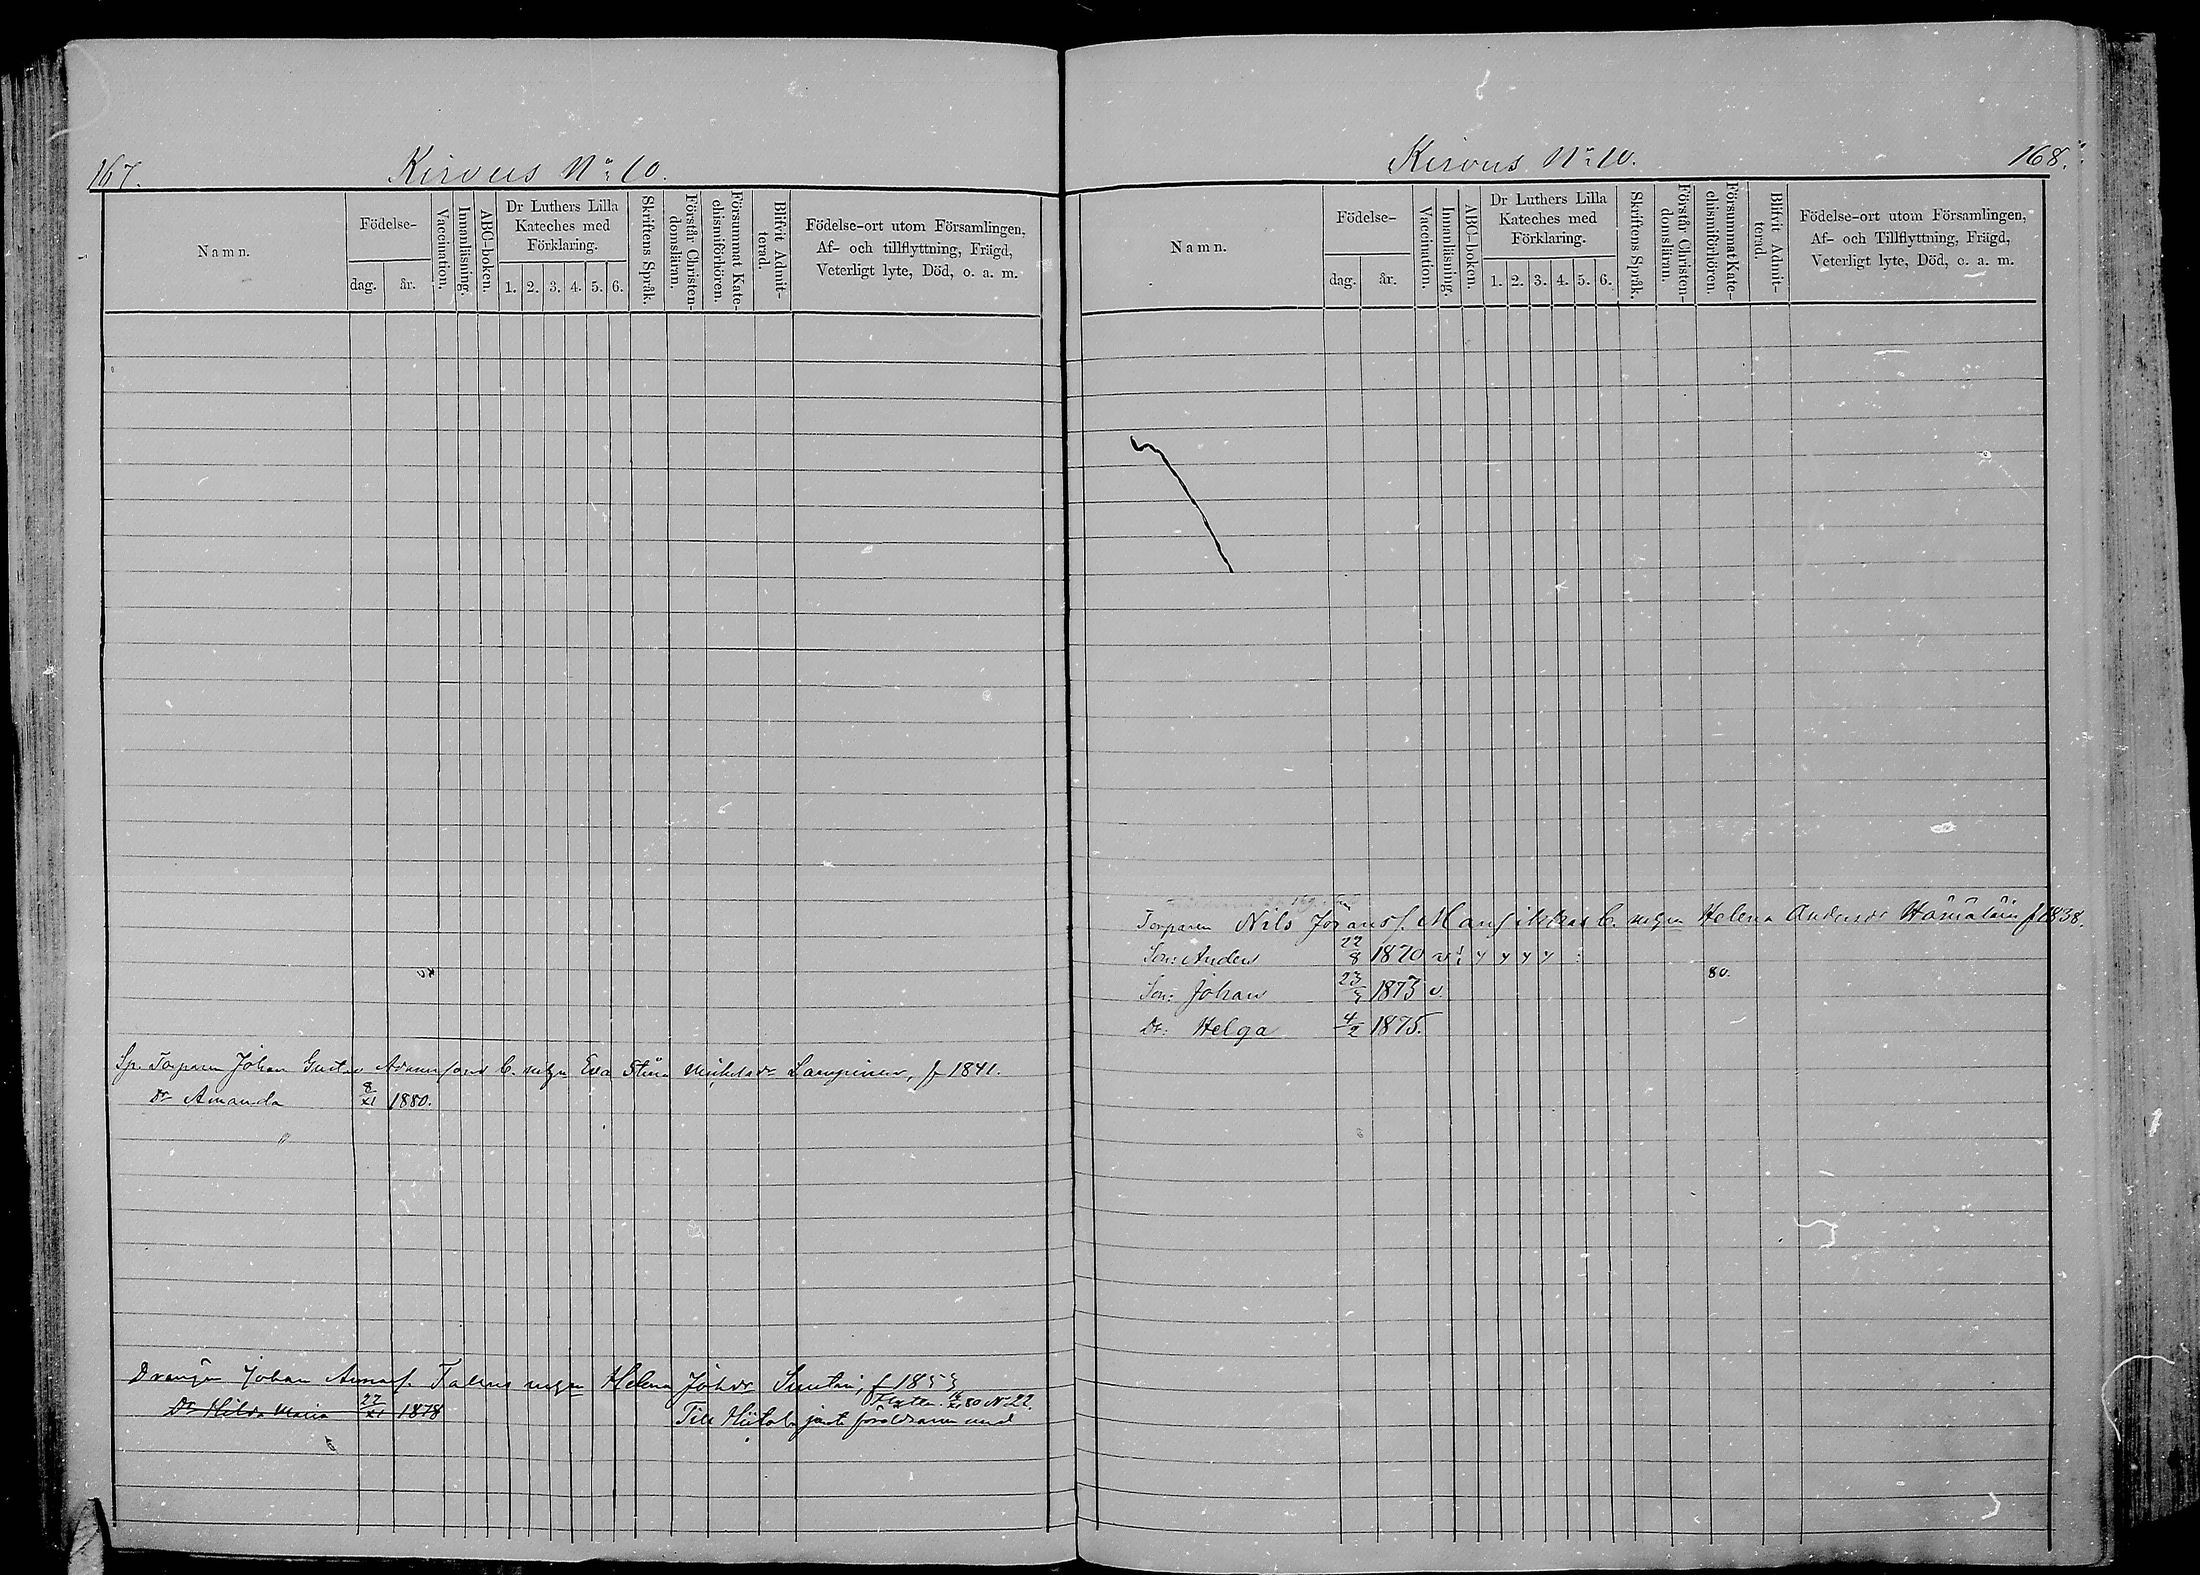 167.
Kirvus N:o 10.
Namn.
Födelse-
dag. år.
Vaccination.
Innanläsning.
ABC-boken.
Dr Luthers Lilla Kateches med Förklaring.
1. 2. 3. 4. 5. 6.
Skriftens Språk.
Förstår Christendomsläran.
Försummat Katechismiförhören.
Blifvit Admitterad.
Födelse-ort utom Församlingen, Af- och tillflyttning, Frägd, Veterligt lyte, Död, o. a. m.
Sp. Torparen Johan Gustav Adamssons C. m. hustru Eva Stina Michelsdr f 1841.
Dr Amanda 8/XI 1880.
Drängen Johan Helena Johdr f 185
Dr Hilda Maria 27/XI 1878 Till Hiitola jemte föräldrarne med
Flxtten. 80 No 22.
Kirvus N:o 10.
168.
Namn.
Födelse-
dag. år.
Vaccination.
Innanläsning.
ABC-boken.
Dr Luthers Lilla Kateches med Förklaring.
1. 2. 3. 4. 5. 6.
Skriftens Språk.
Förstår Christendomsläran.
Försummat Katechismiförhören.
Blifvit Admitterad.
Födelse-ort utom Församlingen, Af- och Tillflyttning, Frägd, Veterligt lyte, Död, o. a. m.
Torparen Nils Joranss. Mansikkas C. Helena Andersdr Hämäläin f 1838.
Son: Anders 22/8 1870 v
Son: Johan 23/5 1873 v. 80.
Dr: Helga 4/2 1875.